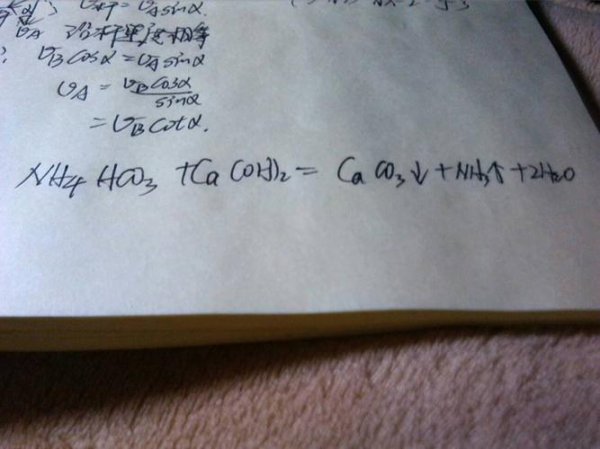 v_A sinα.
v_A 沿杆速度相等
v_B cosα = v_A sinα
v_A = v_B cosα / sinα
= v_B cotα.
NH4HCO3 + Ca(OH)2 = CaCO3↓ + NH3↑ + 2H2O